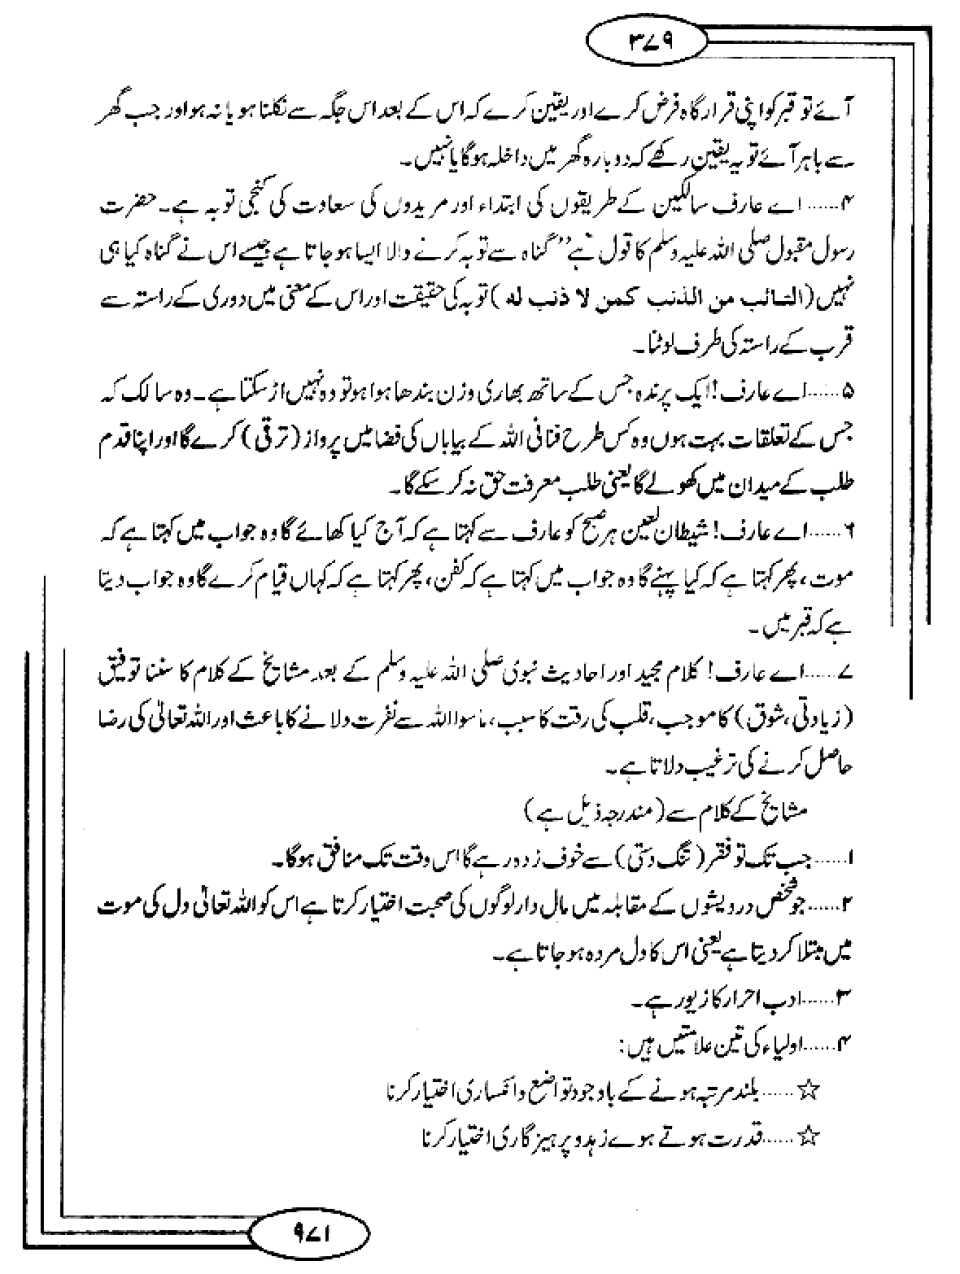 ۳۷۹
آئے تو قبر کو اپنی قرار گاہ فرض کرے اور یقین کرے کہ اس کے بعد اس جگہ سے نکلنا ہو یا نہ ہو اور جب گھر
سے باہر آئے تو یہ یقین رکھے کہ دوبارہ گھر میں داخلہ ہوگا یا نہیں۔
۴......اے عارف سالکین کے طریقوں کی ابتداء اور مریدوں کی سعادت کی کنجی توبہ ہے۔ حضرت
رسول مقبول صلی اللہ علیہ وسلم کا قول ہے ’’گناہ سے توبہ کرنے والا ایسا ہو جاتا ہے جیسے اس نے گناہ کیا ہی
نہیں (التائب من الذنب کمن لا ذنب له) توبہ کی حقیقت اور اس کے معنی میں دوری کے راستہ سے
قرب کے راستہ کی طرف لوٹنا۔
۵......اے عارف! ایک پرندہ جس کے ساتھ بھاری وزن بندھا ہوا ہو تو وہ نہیں اڑ سکتا ہے۔ وہ سالک کہ
جس کے تعلقات بہت ہوں وہ کس طرح فنا فی اللہ کے بیاباں کی فضا میں پرواز (ترقی) کرے گا اور اپنا قدم
طلب کے میدان میں کھولے گا یعنی طلب معرفت حق نہ کر سکے گا۔
۶......اے عارف! شیطان لعین ہر صبح کو عارف سے کہتا ہے کہ آج کیا کھائے گا وہ جواب میں کہتا ہے کہ
موت، پھر کہتا ہے کہ کیا پہنے گا وہ جواب میں کہتا ہے کہ کفن، پھر کہتا ہے کہ کہاں قیام کرے گا وہ جواب دیتا
ہے کہ قبر میں۔
۷......اے عارف! کلام مجید اور احادیث نبوی صلی اللہ علیہ وسلم کے بعد مشایخ کے کلام کا سننا توفیق
(زیادتی، شوق) کا موجب، قلب کی رقت کا سبب، ماسوا اللہ سے نفرت دلانے کا باعث اور اللہ تعالیٰ کی رضا
حاصل کرنے کی ترغیب دلاتا ہے۔
مشایخ کے کلام سے (مندرجہ ذیل ہے)
۱......جب تک تو فقر (تنگ دستی) سے خوف زدہ رہے گا اس وقت تک منافق ہوگا۔
۲......جو شخص درویشوں کے مقابلہ میں مال دار لوگوں کی صحبت اختیار کرتا ہے اس کو اللہ تعالیٰ دل کی موت
میں مبتلا کر دیتا ہے یعنی اس کا دل مردہ ہو جاتا ہے۔
۳......ادب احرار کا زیور ہے۔
۴......اولیاء کی تین علامتیں ہیں:
☆......بلند مرتبہ ہونے کے باوجود تواضع و انکساری اختیار کرنا
☆......قدرت ہوتے ہوے زہد و پرہیز گاری اختیار کرنا
۹۷۱